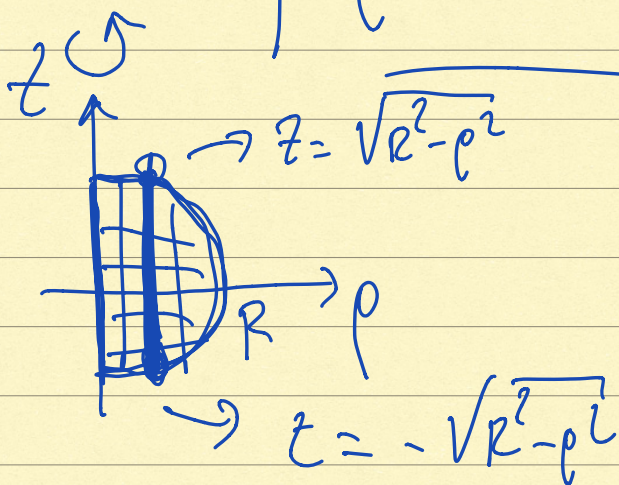 z
z = √(R²-ρ²)
R
ρ
z = -√(R²-ρ²)